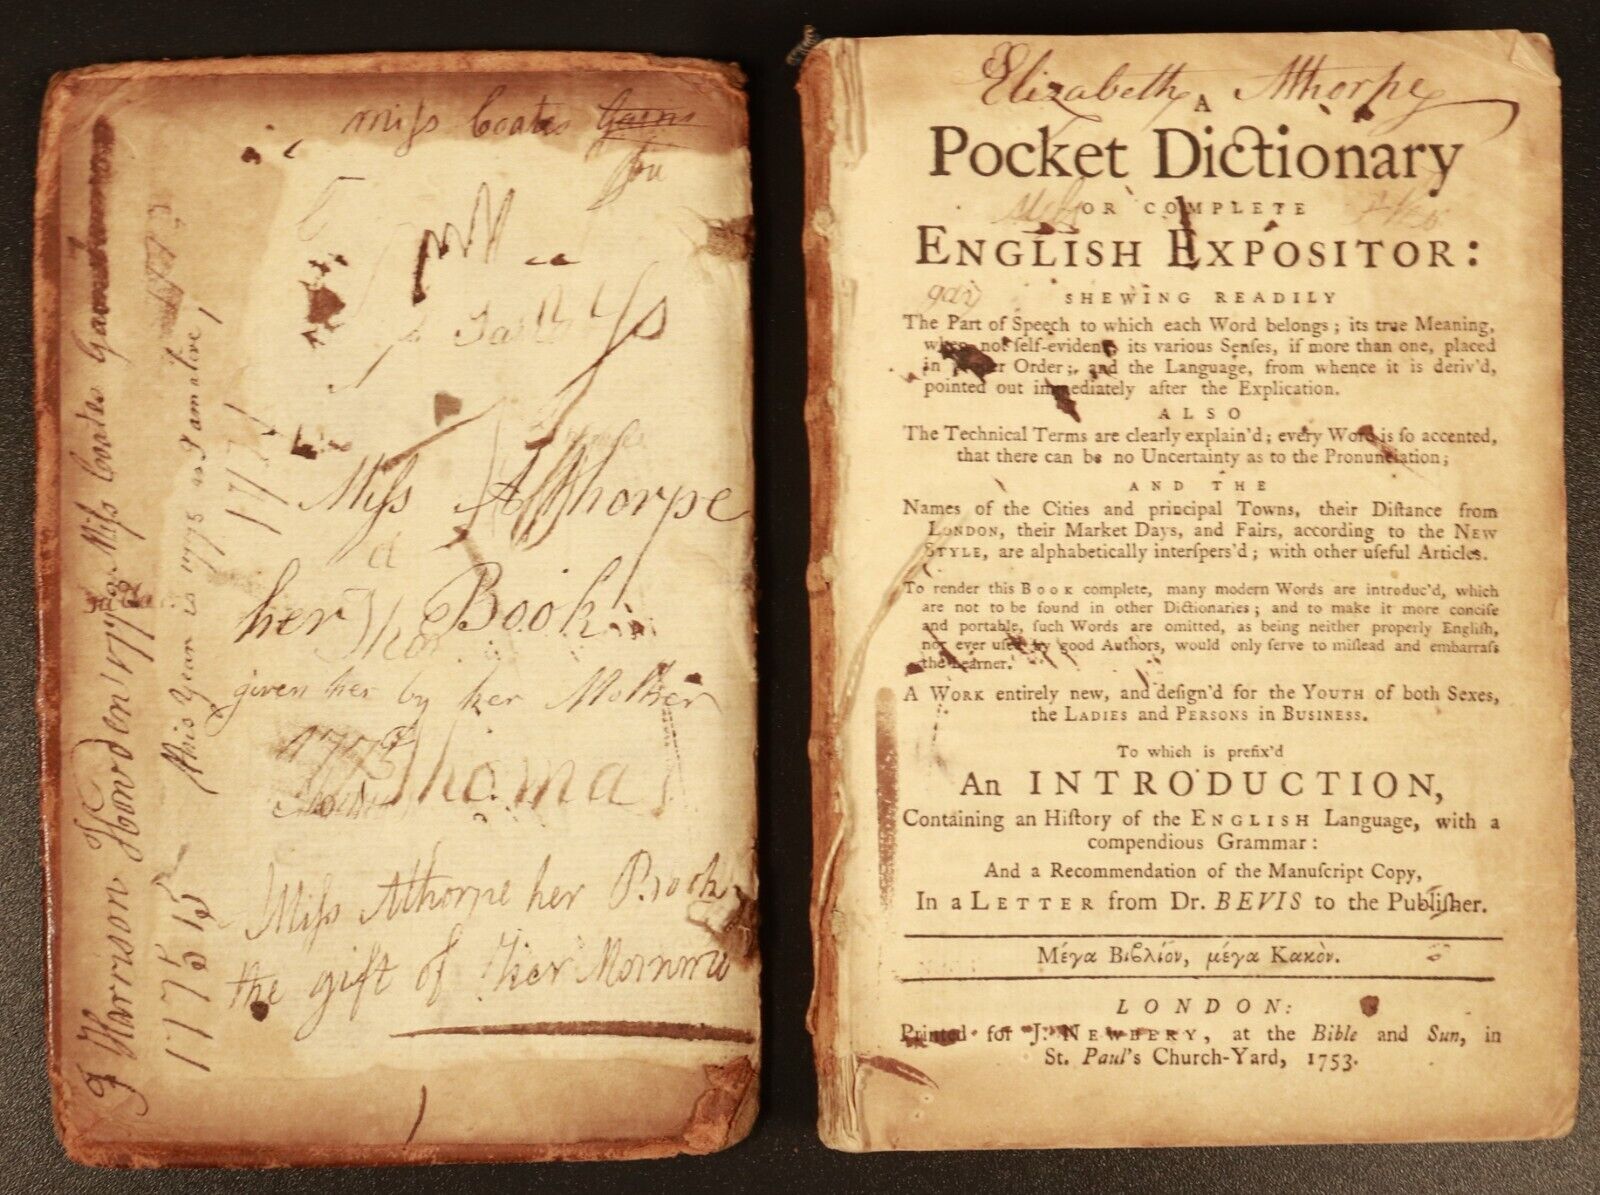 miſs Coates
you
Miſs Althorpe
her Book
given her by her Mother
1773
Thomas
Miſs Althorpe her Book
the gift of her Momma
Harrison Howden 1775 Miſs Coates
this Year is 1775 as I am alive
1775
Elizabeth Althorpe
A
Pocket Dictionary
OR COMPLETE
ENGLISH EXPOSITOR:
SHEWING READILY
The Part of Speech to which each Word belongs; its true Meaning,
when not ſelf-evident, its various Senſes, if more than one, placed
in Order; and the Language, from whence it is deriv'd,
pointed out immediately after the Explication.
ALSO
The Technical Terms are clearly explain'd; every Word is ſo accented,
that there can be no Uncertainty as to the Pronunciation;
AND THE
Names of the Cities and principal Towns, their Diſtance from
LONDON, their Market Days, and Fairs, according to the NEW
STYLE, are alphabetically interſpers'd; with other uſeful Articles.
To render this BOOK complete, many modern Words are introduc'd, which
are not to be found in other Dictionaries; and to make it more conciſe
and portable, ſuch Words are omitted, as being neither properly Engliſh,
nor ever uſed by good Authors, would only ſerve to miſlead and embarraſs
the Learner.
A WORK entirely new, and deſign'd for the YOUTH of both Sexes,
the LADIES and PERSONS in BUSINESS.
To which is prefix'd
An INTRODUCTION,
Containing an Hiſtory of the ENGLISH Language, with a
compendious Grammar:
And a Recommendation of the Manuſcript Copy,
In a LETTER from Dr. BEVIS to the Publiſher.
Μέγα Βιβλίον, μέγα Κακὸν.
LONDON:
Printed for J. NEWBERY, at the Bible and Sun, in
St. Paul's Church-Yard, 1753.